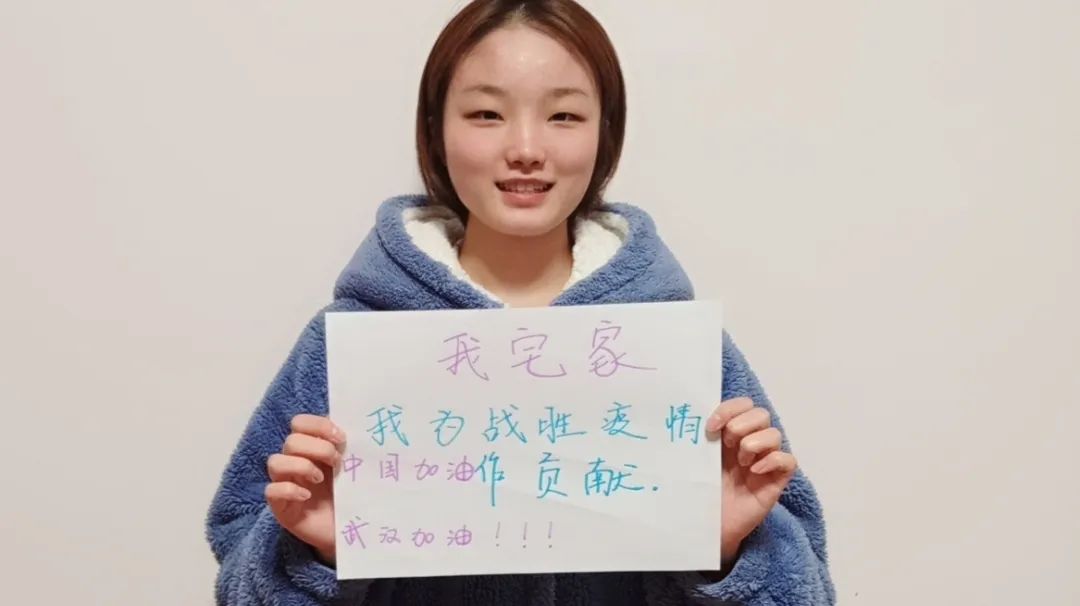 我宅家
我为战胜疫情
作贡献.
中国加油
武汉加油！！！